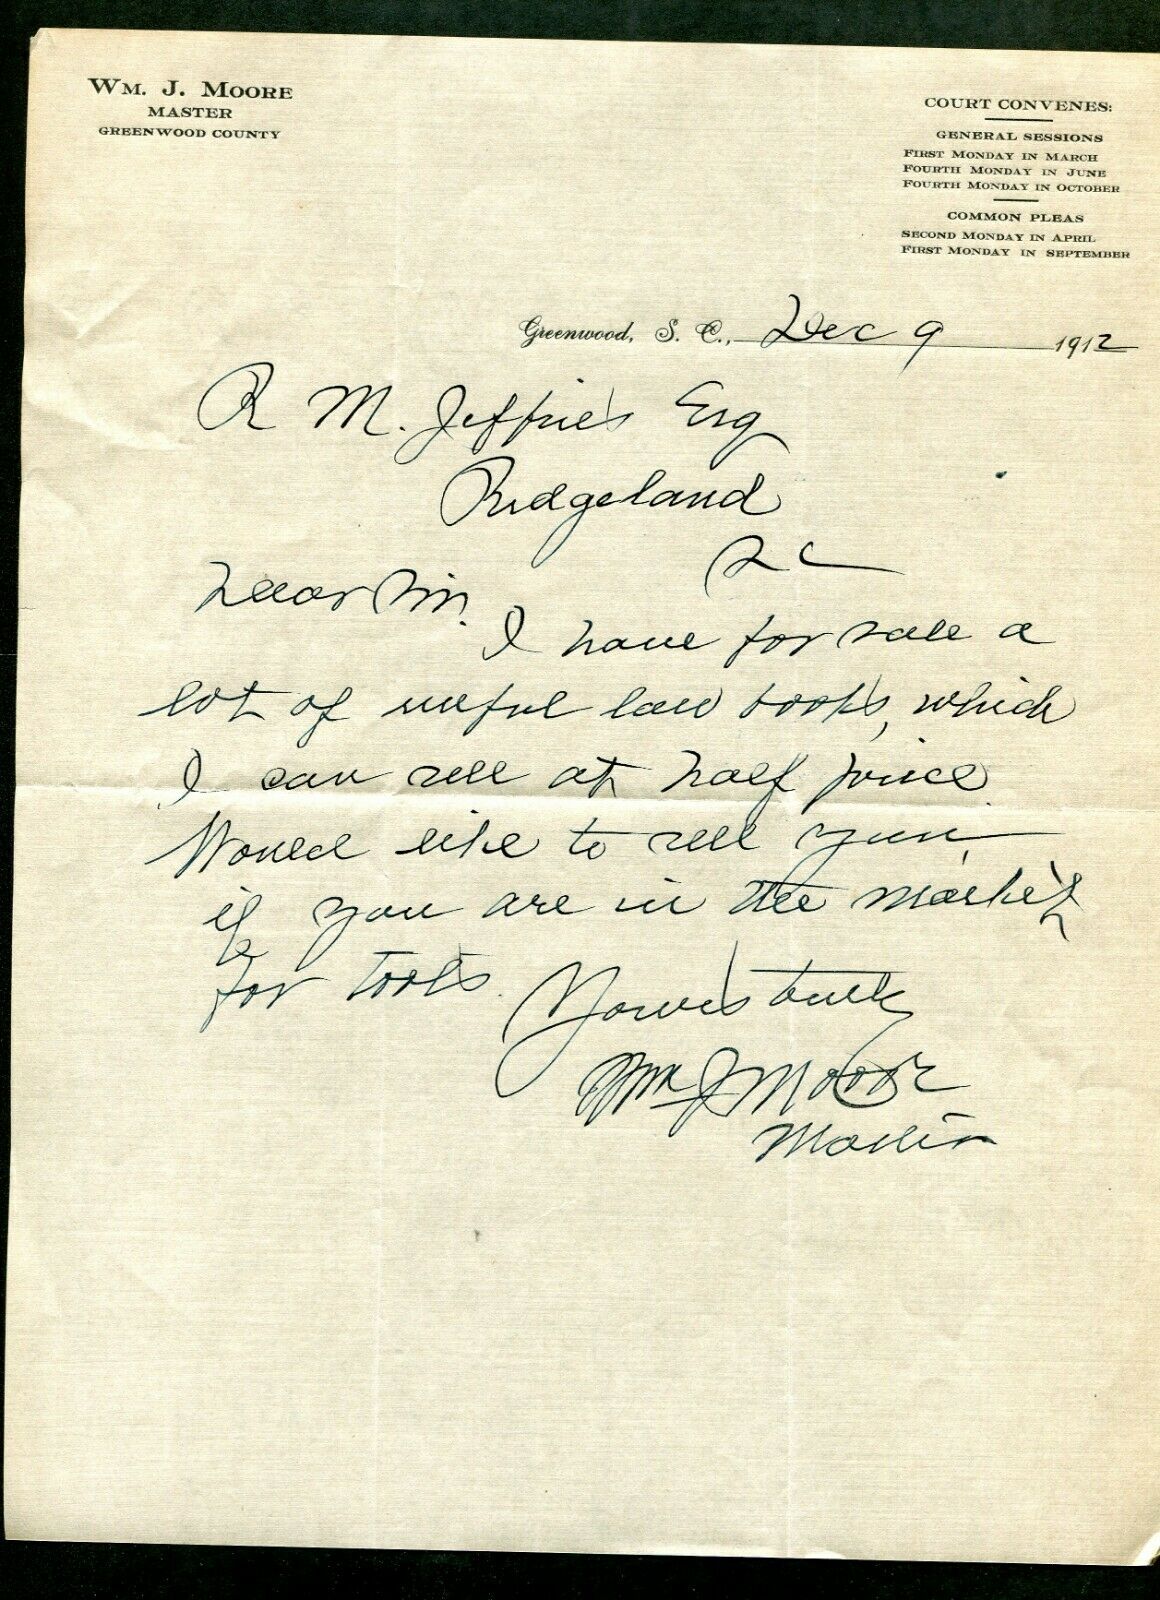 WM. J. MOORE
MASTER
GREENWOOD COUNTY
COURT CONVENES:
GENERAL SESSIONS
FIRST MONDAY IN MARCH
FOURTH MONDAY IN JUNE
FOURTH MONDAY IN OCTOBER
COMMON PLEAS
SECOND MONDAY IN APRIL
FIRST MONDAY IN SEPTEMBER
Greenwood, S. C., Dec 9 1912
R M. Jeffries Esq
Ridgeland
S C
Dear Sir.
I have for sale a
lot of useful law books, which
I can sell at half price.
Would like to sell you
if you are in the market
for books.
Yours truly
Wm J Moore
Master